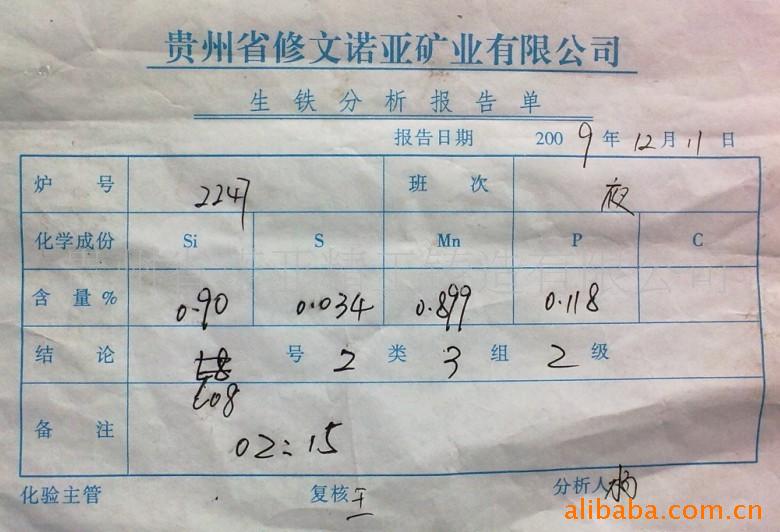 贵州省修文诺亚矿业有限公司
生铁分析报告单
报告日期 2009年12月11日
炉号 2247 班次 夜
化学成份 Si S Mn P C
含量% 0.90 0.034 0.899 0.118
结论 L08 号 2 类 3 组 2 级
备注 02:15
化验主管 复核 王 分析人
alibaba.com.cn